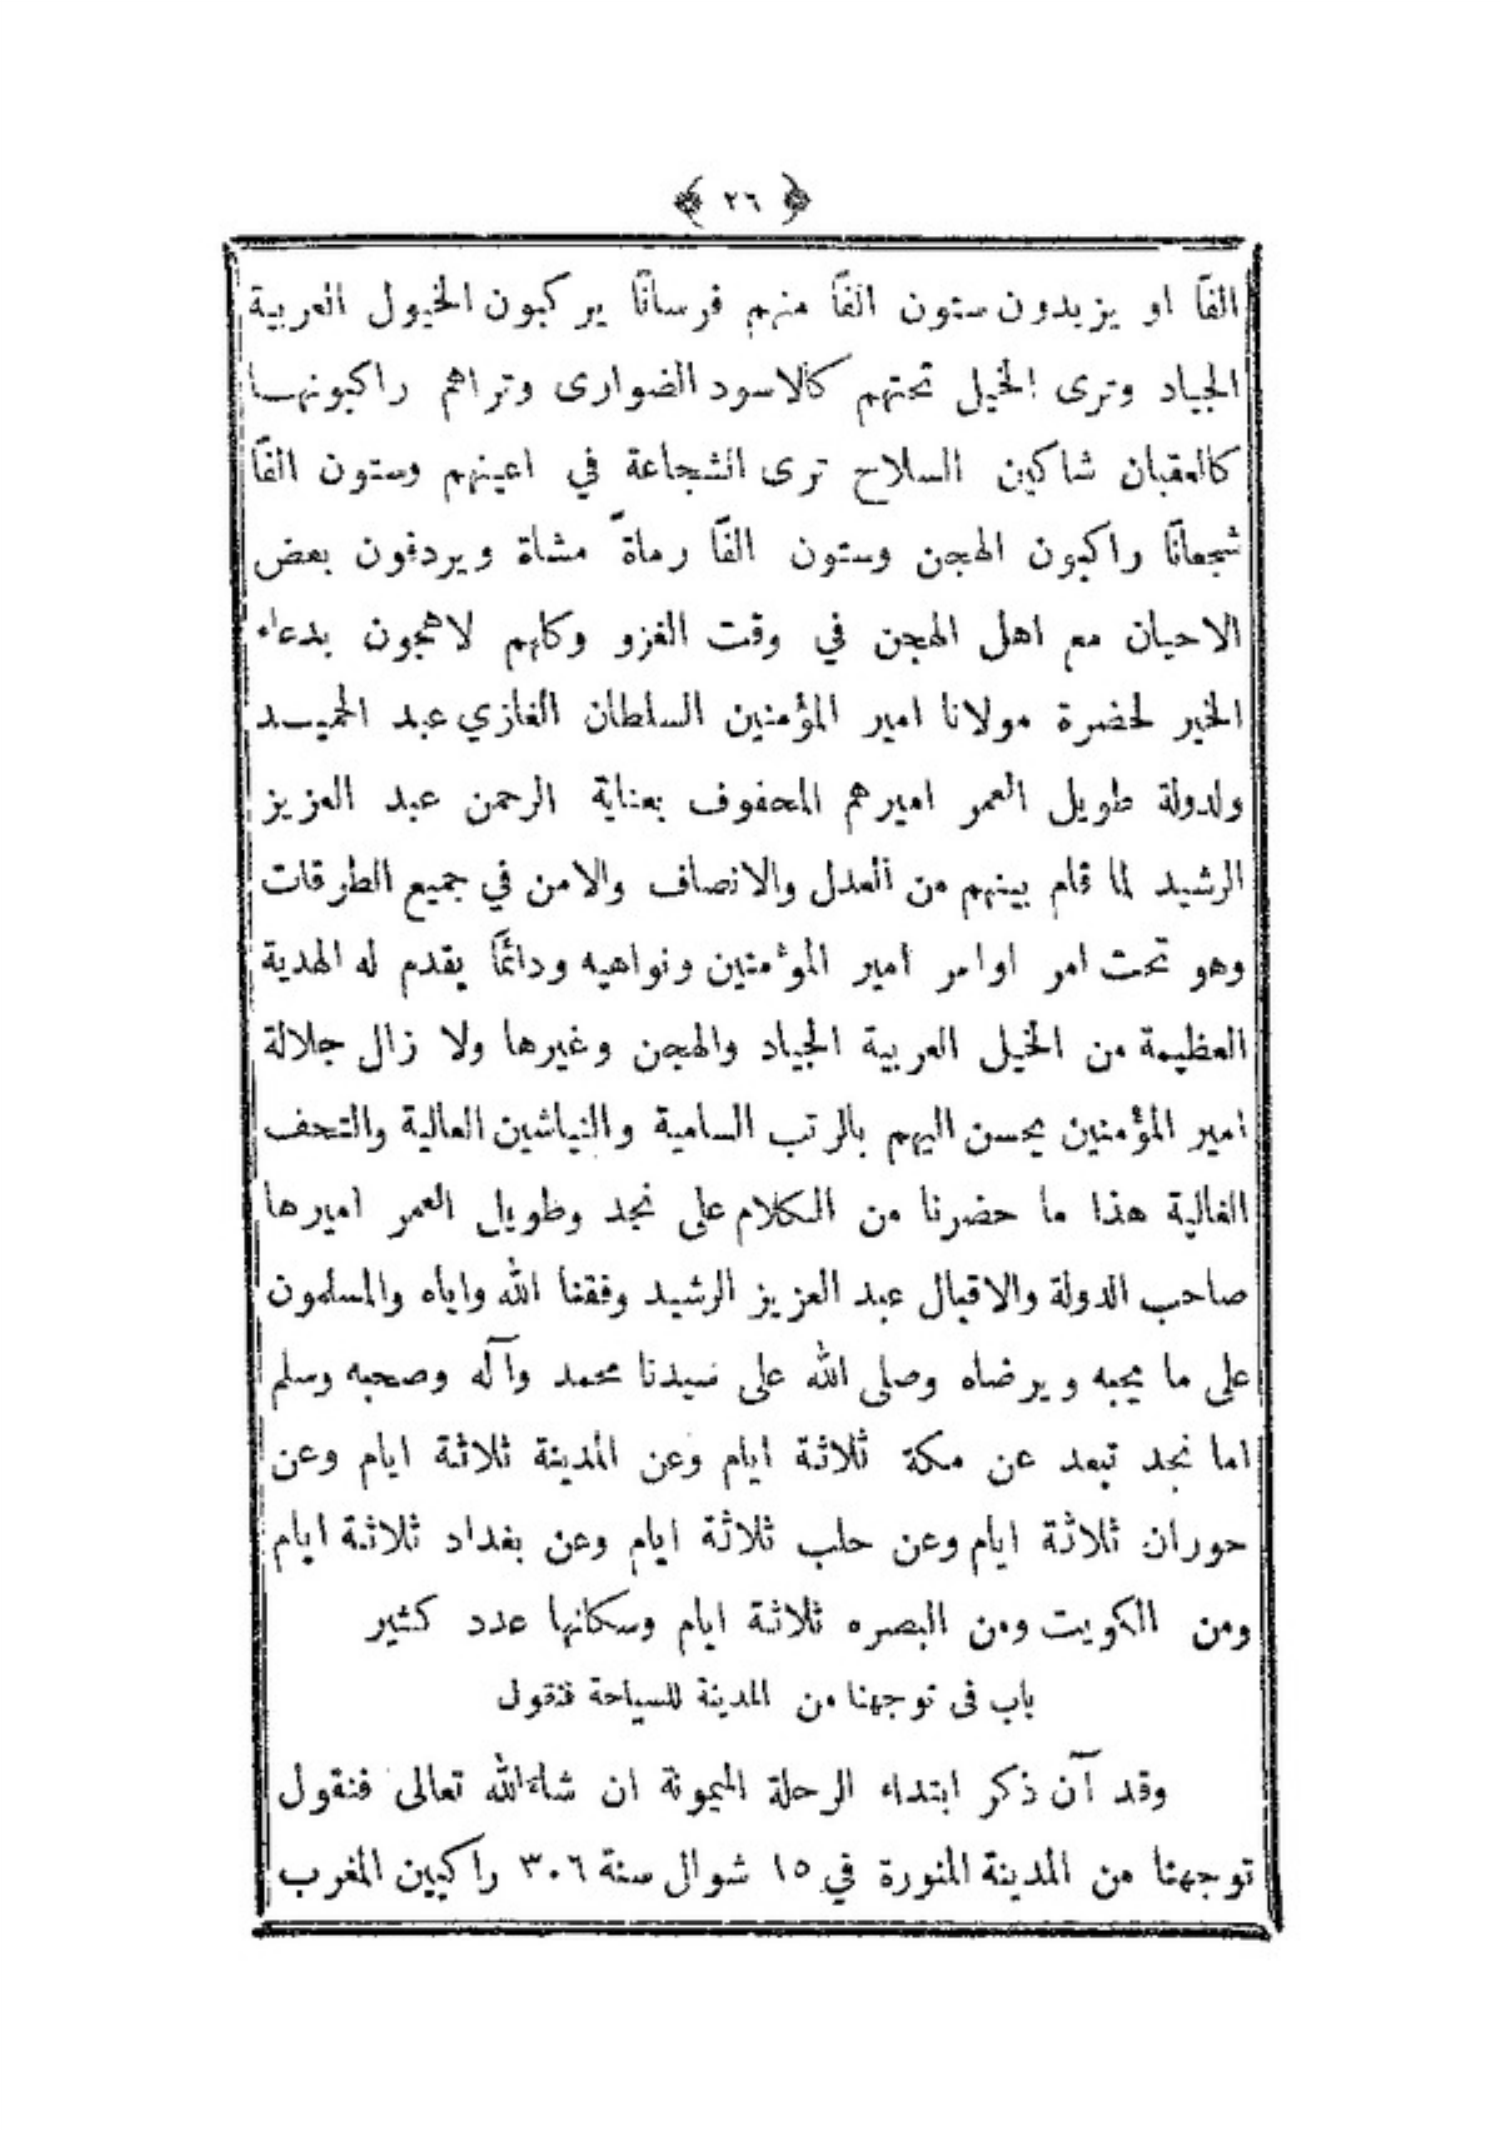 ﴿ ٢٦ ﴾
الفًا او يزيدون ستون الفًا منهم فرسانًا يركبون الخيول العربية
الجياد وترى الخيل تحتهم كالاسود الضوارى وتراهم راكبونها
كالعقبان شاكين السلاح ترى الشجاعة في اعينهم وستون الفًا
شجعانًا راكبون الهجن وستون الفًا رماةً مشاة ويردفون بعض
الاحيان مع اهل الهجن في وقت الغزو وكلهم لاهجون بدعاء
الخير لحضرة مولانا امير المؤمنين السلطان الغازي عبد الحميد
ولدولة طويل العمر اميرهم المحفوف بعناية الرحمن عبد العزيز
الرشيد لما قام بينهم من العدل والانصاف والامن في جميع الطرقات
وهو تحت امر اوامر امير المؤمنين ونواهيه ودائمًا يقدم له الهدية
العظيمة من الخيل العربية الجياد والهجن وغيرها ولا زال جلالة
امير المؤمنين يحسن اليهم بالرتب السامية والنياشين العالية والتحف
الغالية هذا ما حضرنا من الكلام على نجد وطويل العمر اميرها
صاحب الدولة والاقبال عبد العزيز الرشيد وفقنا الله واياه والمسلمون
على ما يحبه ويرضاه وصلى الله على سيدنا محمد وآله وصحبه وسلم
اما نجد تبعد عن مكة ثلاثة ايام وعن المدينة ثلاثة ايام وعن
حوران ثلاثة ايام وعن حلب ثلاثة ايام وعن بغداد ثلاثة ايام
ومن الكويت ومن البصره ثلاثة ايام وسكانها عدد كثير
باب فى توجهنا من المدينة للسياحة فنقول
وقد آن ذكر ابتداء الرحلة الميمونة ان شاء الله تعالى فنقول
توجهنا من المدينة المنورة في ١٥ شوال سنة ٣٠٦ راكبين المغرب